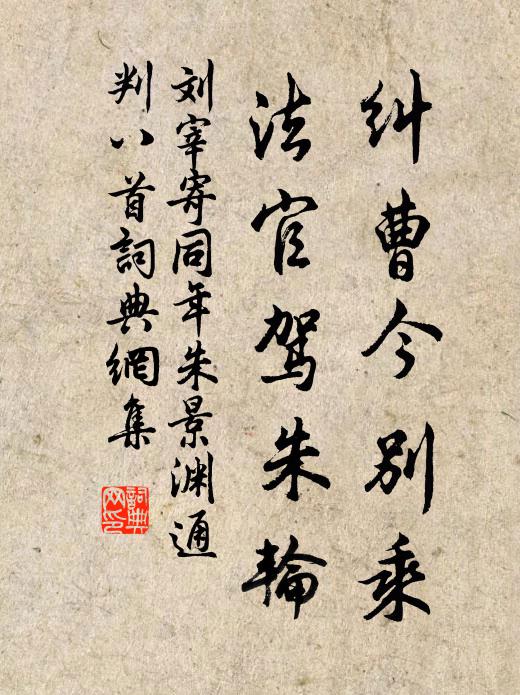 糾曹今別乘
法官駕朱輪
刘宰寄同年朱景渊通
判八首詞典網集
詞典
网印